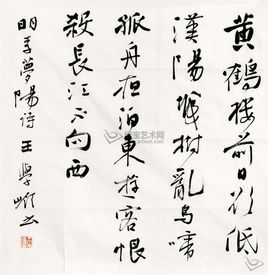 黃鶴樓前日欲低
漢陽城樹亂烏啼
孤舟夜泊東遊客恨
殺長江不向西
明李夢陽詩王學岭书